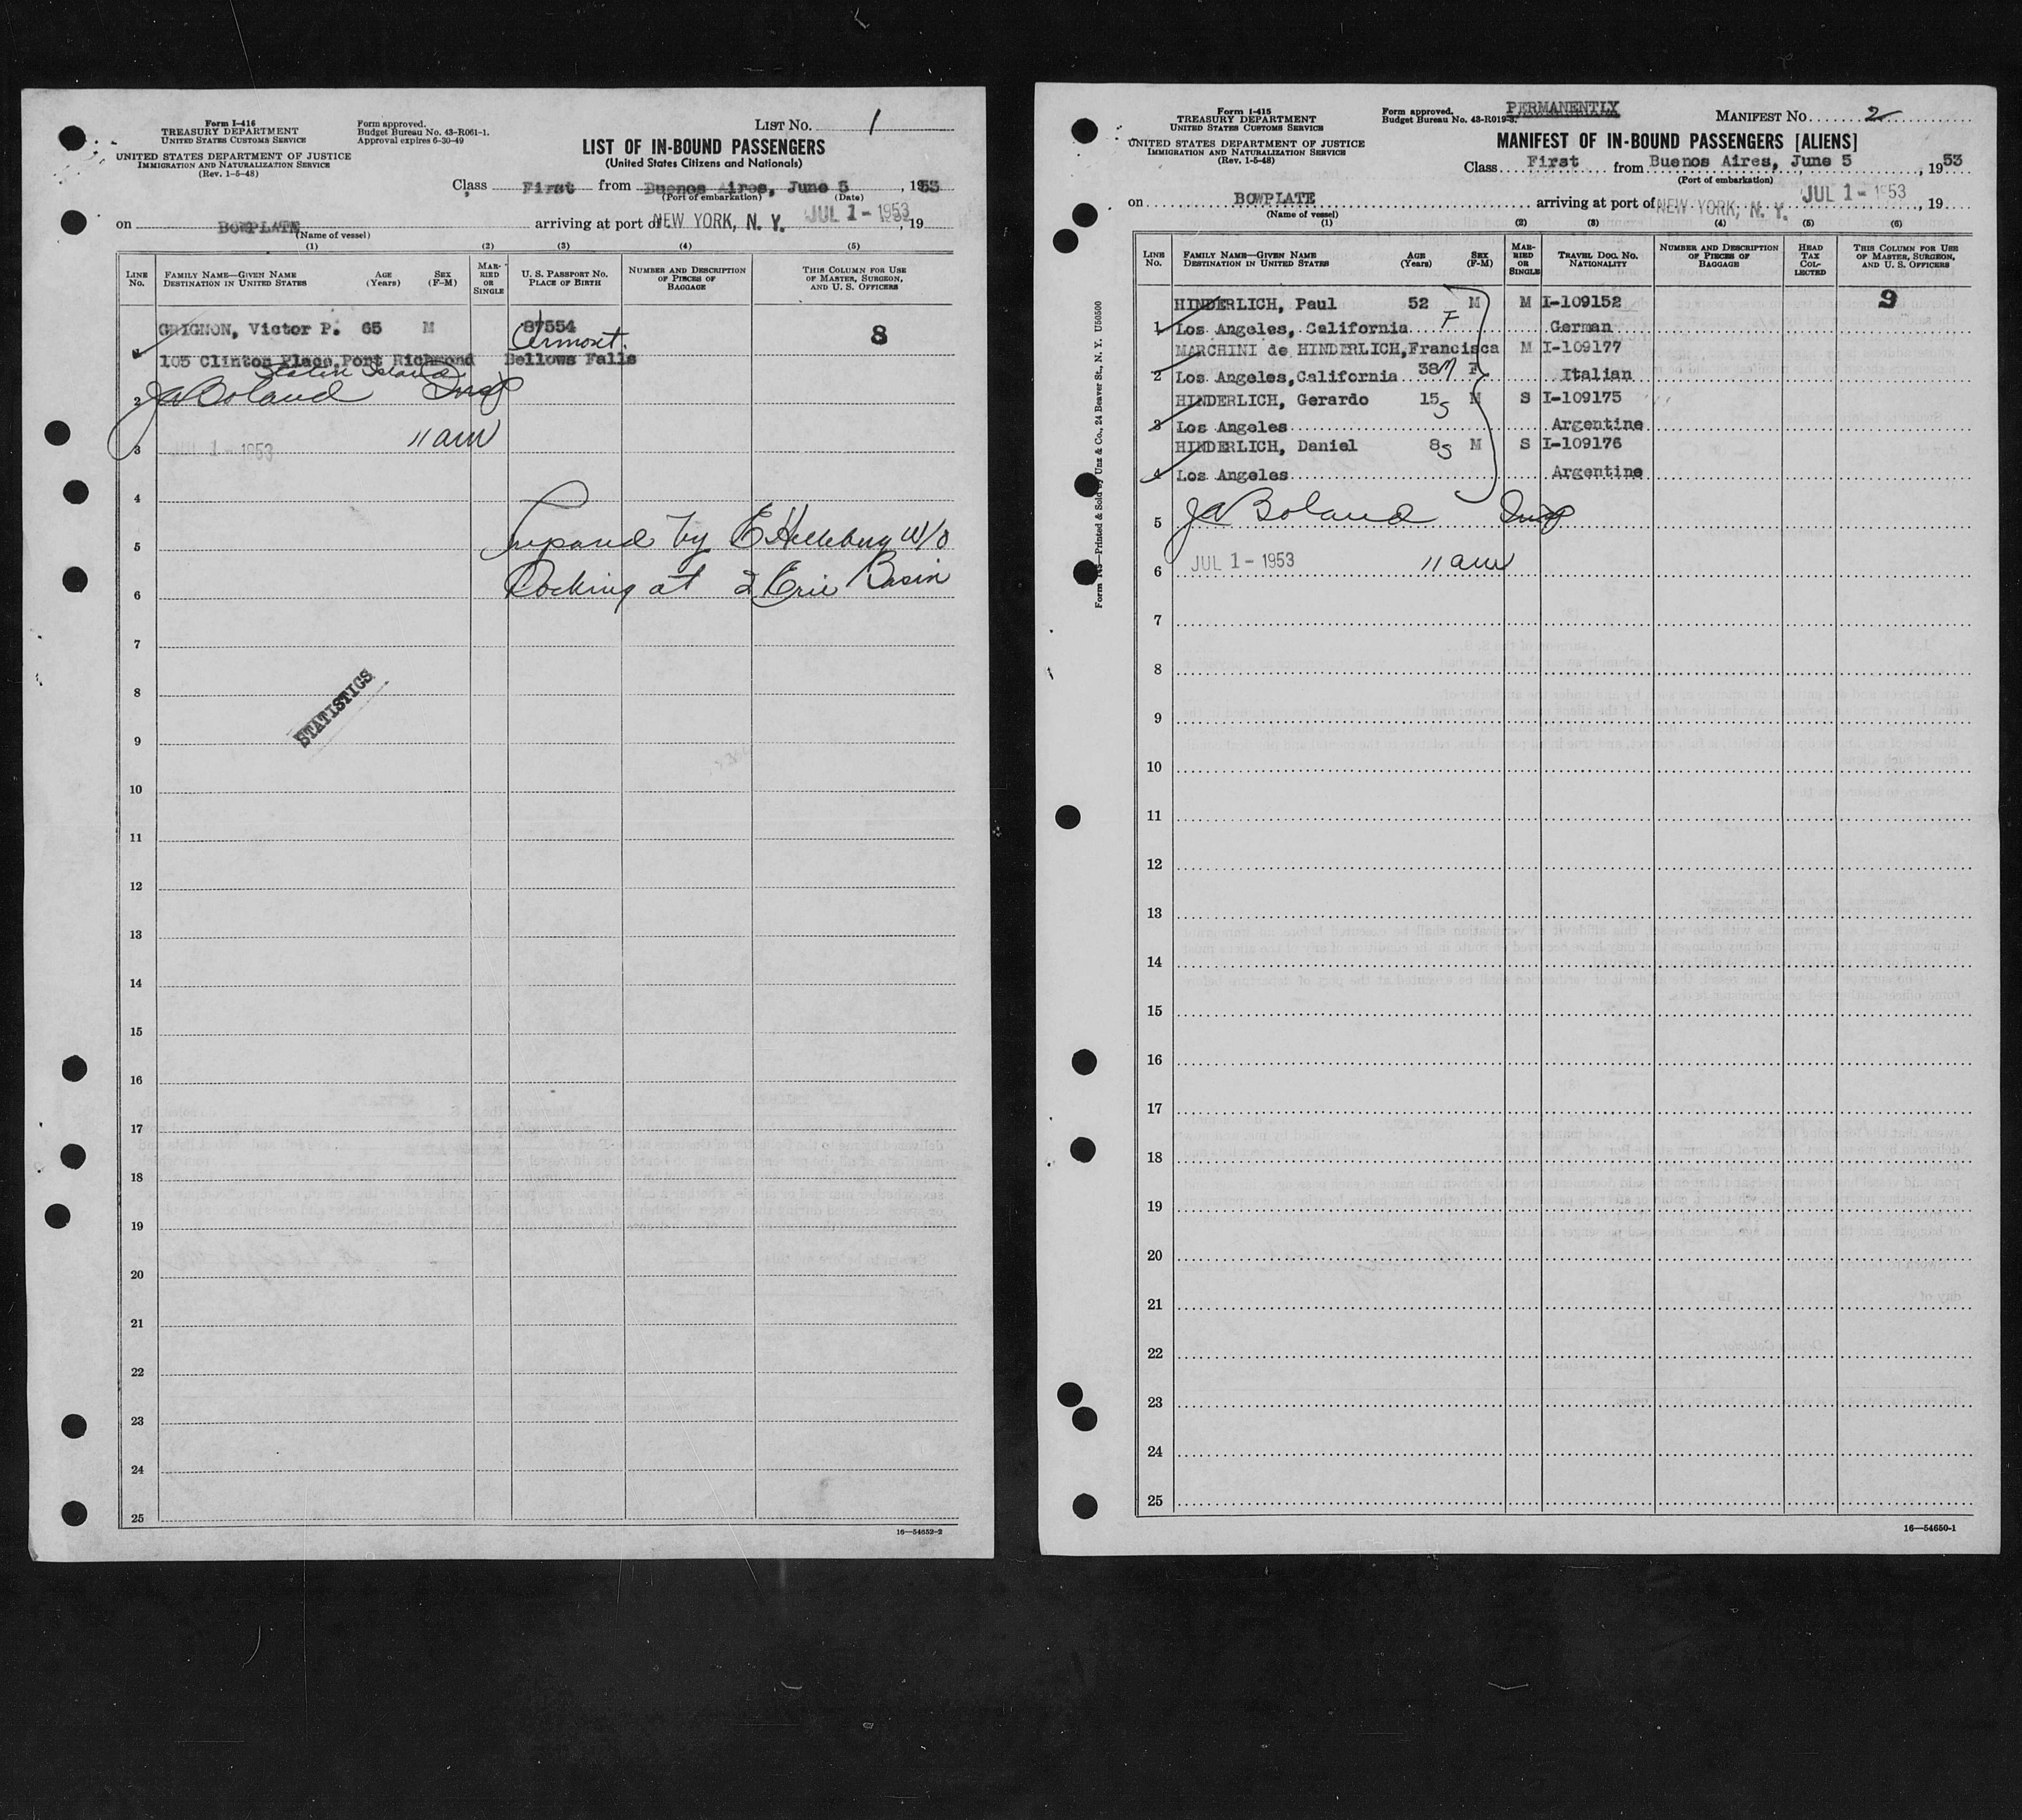 Form I-416
TREASURY DEPARTMENT
UNITED STATES CUSTOMS SERVICE
UNITED STATES DEPARTMENT OF JUSTICE
IMMIGRATION AND NATURALIZATION SERVICE
(Rev. 1-5-48)
Form approved.
Budget Bureau No. 43-R061-1.
Approval expires 6-30-49
LIST NO. 1
LIST OF IN-BOUND PASSENGERS
(United States Citizens and Nationals)
Class First from Buenos Aires, June 5, 1953
(Port of embarkation) (Date)
on BOWPLATE arriving at port of NEW YORK, N. Y. JUL 1 - 1953, 19
(Name of vessel)
(1) (2) (3) (4) (5)
LINE NO. FAMILY NAME—GIVEN NAME DESTINATION IN UNITED STATES AGE (Years) SEX (F-M) MARRIED OR SINGLE U. S. PASSPORT NO. PLACE OF BIRTH NUMBER AND DESCRIPTION OF PIECES OF BAGGAGE THIS COLUMN FOR USE OF MASTER, SURGEON, AND U. S. OFFICERS
GRIGNON, Victor P. 65 M 87554 8
Vermont.
1 105 Clinton Place, Port Richmond Bellows Falls
Staten Island
2 JA Boland Insp
3 JUL 1 - 1953 11 am
4
5 Prepared by E Helleberg W/O
6 Docking at 2 Erie Basin
7
8
STATISTICS
9
10
11
12
13
14
15
16
17
18
19
20
21
22
23
24
25
16—54652-2
Form I-415
TREASURY DEPARTMENT
UNITED STATES CUSTOMS SERVICE
UNITED STATES DEPARTMENT OF JUSTICE
IMMIGRATION AND NATURALIZATION SERVICE
(Rev. 1-5-48)
Form approved.
Budget Bureau No. 43-R019-3.
PERMANENTLY
MANIFEST NO. 2
MANIFEST OF IN-BOUND PASSENGERS [ALIENS]
Class First from Buenos Aires, June 5, 1953
(Port of embarkation)
on BOWPLATE arriving at port of NEW YORK, N. Y. JUL 1 - 1953, 19
(Name of vessel)
(1) (2) (3) (4) (5) (6)
LINE NO. FAMILY NAME—GIVEN NAME DESTINATION IN UNITED STATES AGE (Years) SEX (F-M) MARRIED OR SINGLE TRAVEL DOC. NO. NATIONALITY NUMBER AND DESCRIPTION OF PIECES OF BAGGAGE HEAD TAX COLLECTED THIS COLUMN FOR USE OF MASTER, SURGEON, AND U. S. OFFICERS
HINDERLICH, Paul 52 M M I-109152 9
1 Los Angeles, California F German
MARCHINI de HINDERLICH, Francisca M I-109177
2 Los Angeles, California 38 M F Italian
HINDERLICH, Gerardo 15 S M S I-109175
3 Los Angeles Argentine
HINDERLICH, Daniel 8 S M S I-109176
4 Los Angeles Argentine
5 JA Boland Insp
6 JUL 1 - 1953 11 am
7
8
9
10
11
12
13
14
15
16
17
18
19
20
21
22
23
24
25
16—54650-1
Printed & Sold by Unz & Co., 24 Beaver St., N. Y. U50500